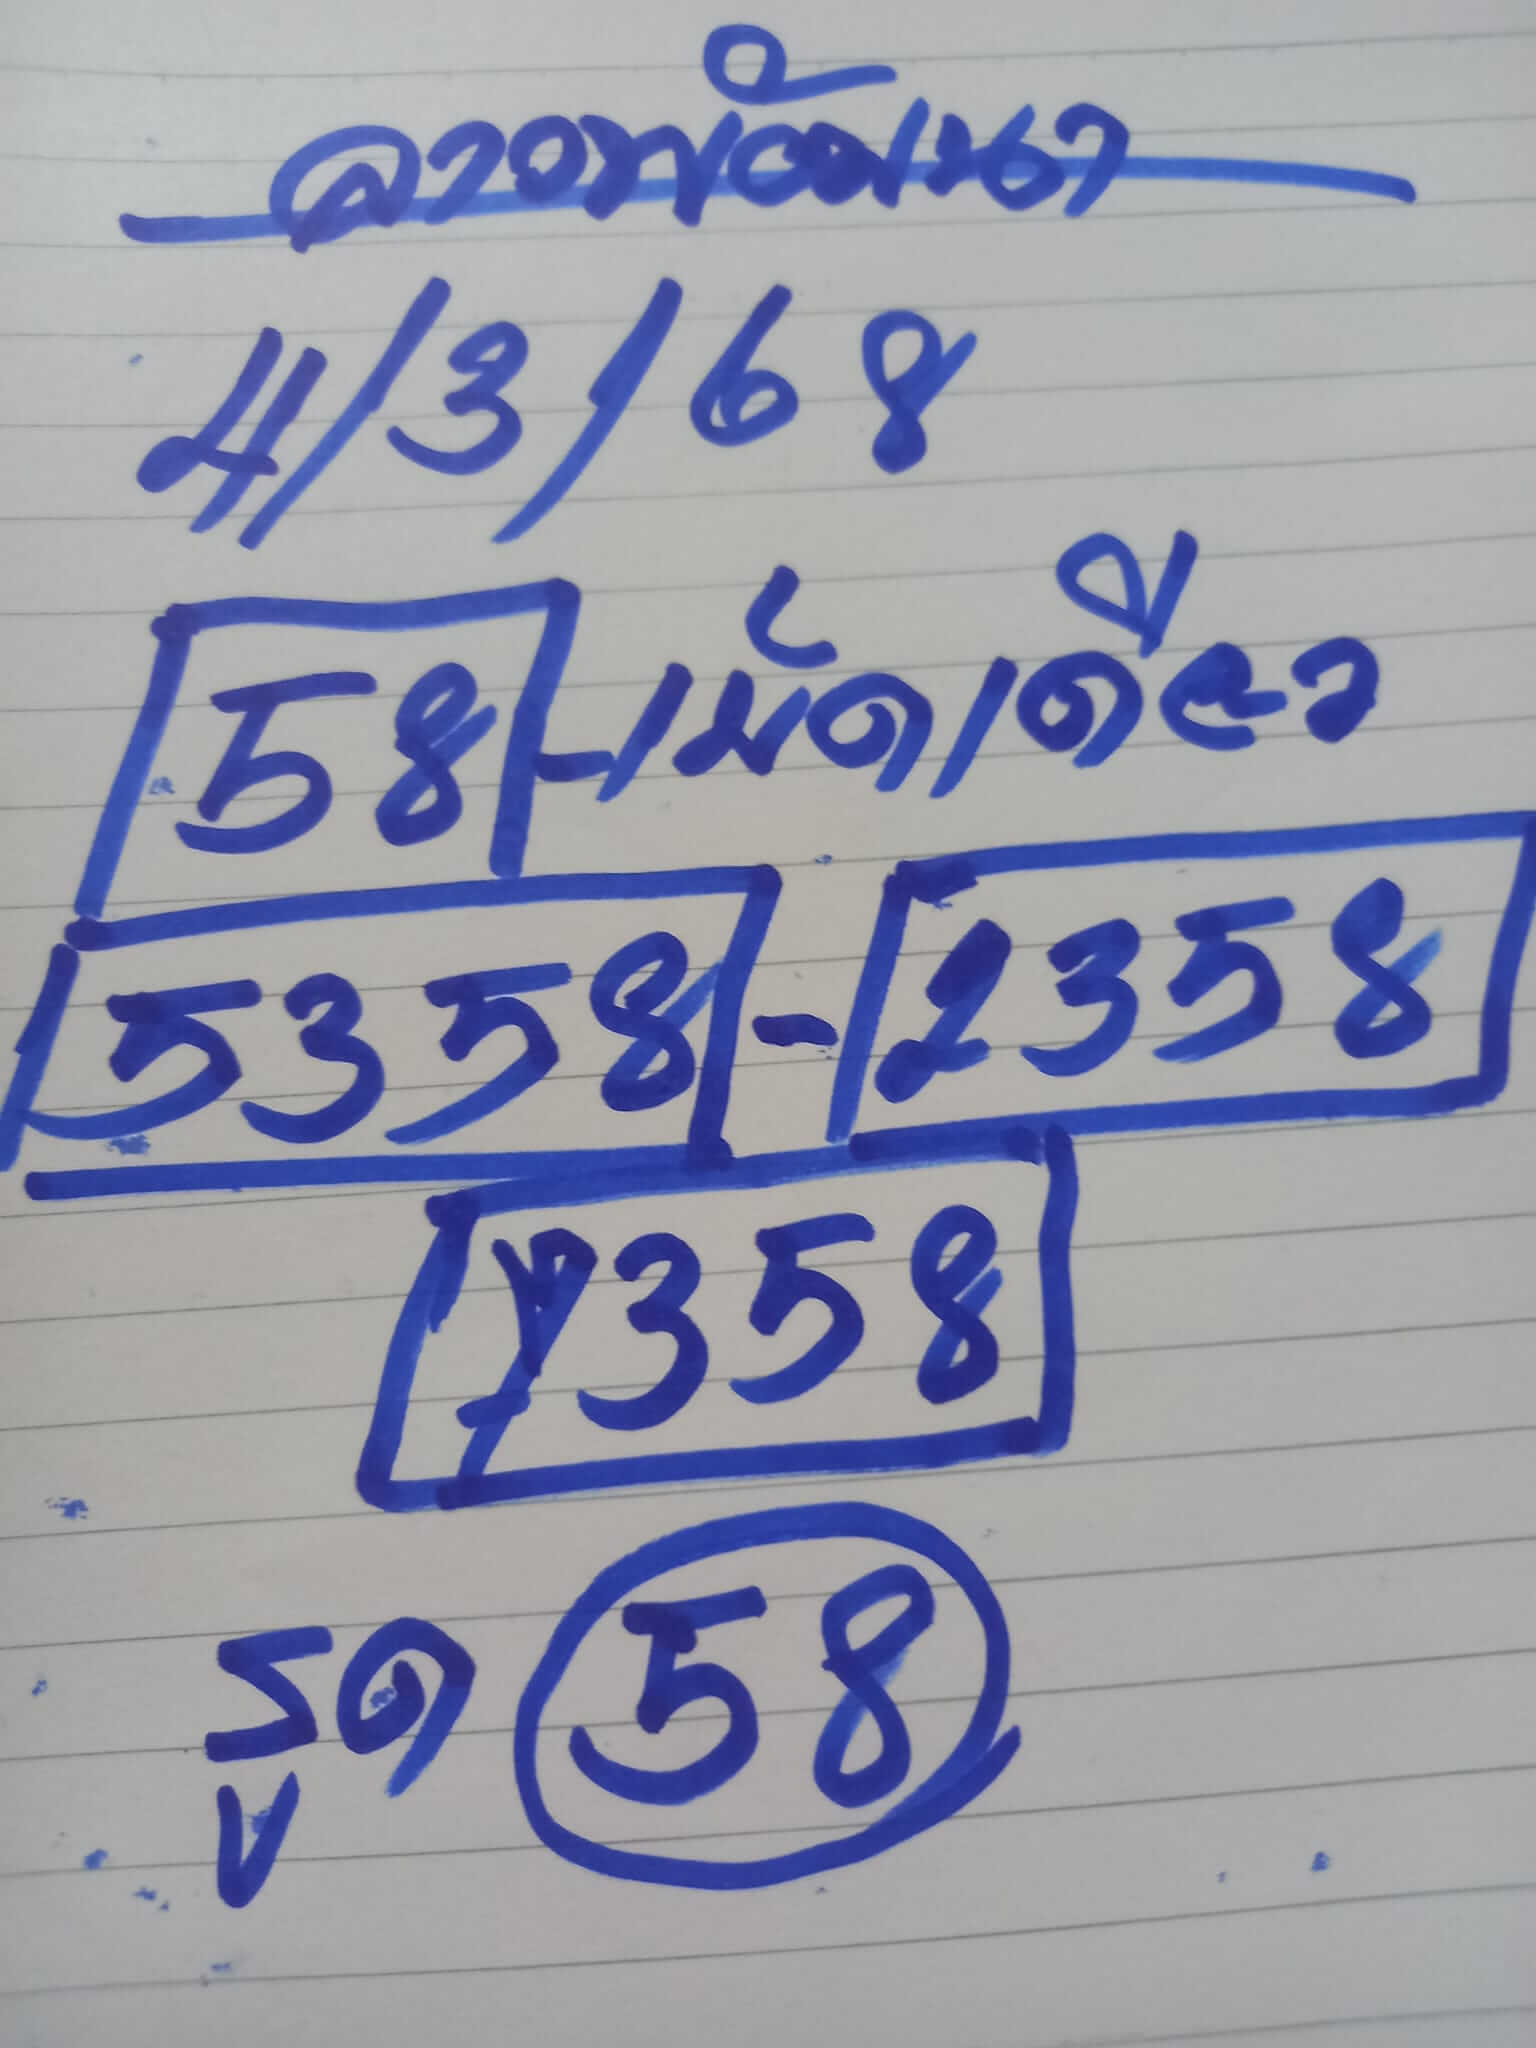 ลาวพัฒนา
4/3/68
58-เม็ดเดียว
5358-2358
358
รูด 58